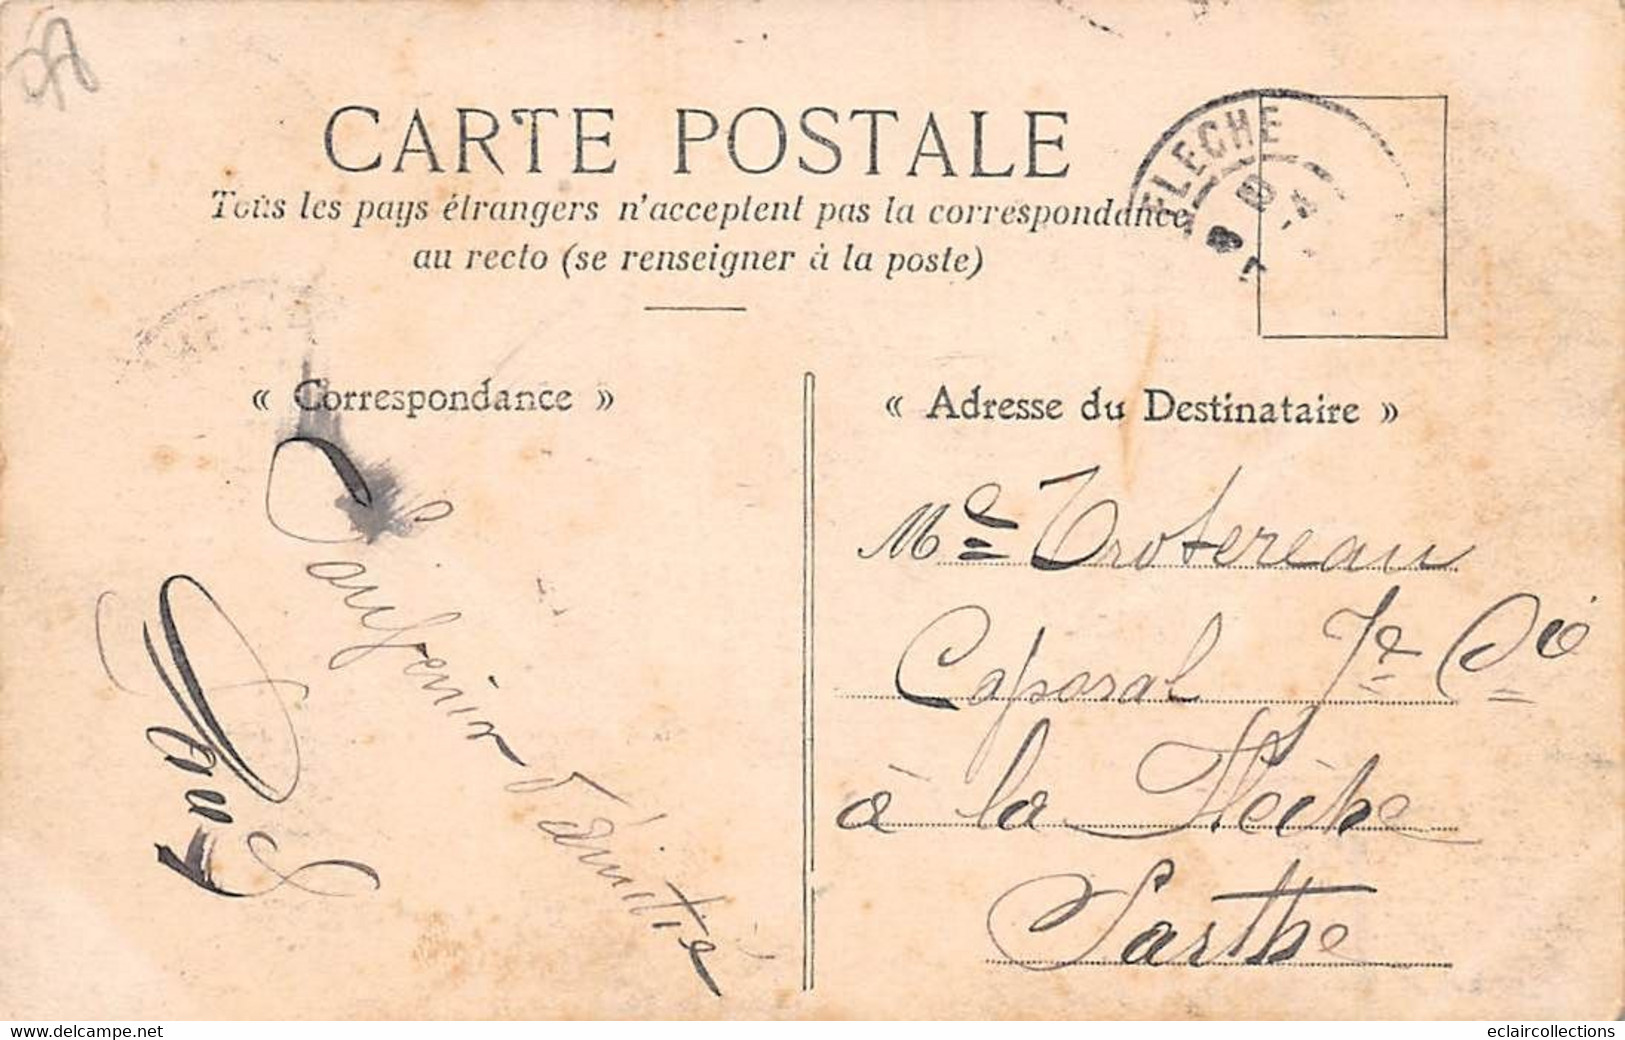 CARTE POSTALE
Tous les pays étrangers n'acceptent pas la correspondance
au recto (se renseigner à la poste)
FLECHE
« Correspondance »
« Adresse du Destinataire »
Souvenir d'amitié
Mr Trotereau
Caporal 7e Cie
à la Flèche
Sarthe
www.delcampe.net
eclaircollections